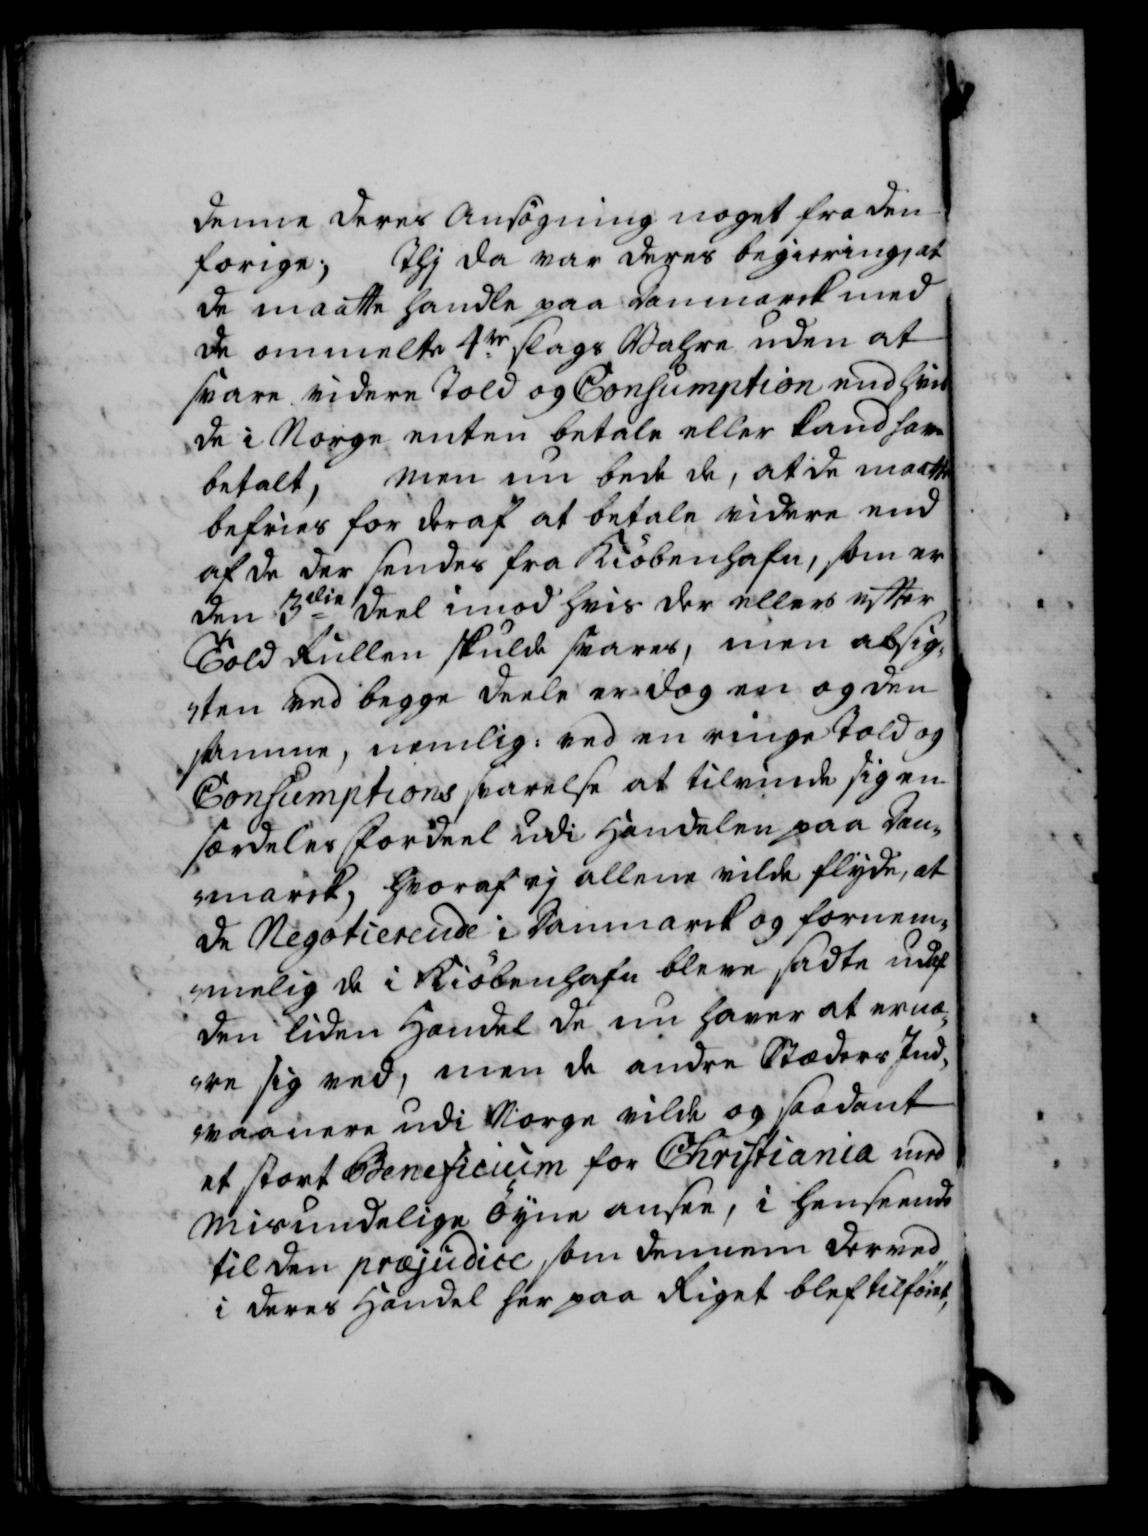 denne deres Ansögning noget fra den
forige; Thj da var deres begiering, at
de maatte handle paa Danmarck med
de ommelte 4re slags Vahre uden at
svare videre Told og Consumption end hvis
de i Norge enten betale eller kand have
betalt, men nu bede de, at de maatte
befries for deraf at betale videre end
af de der sendes fra Kiöbenhafn, som er
den 3die deel imod hvis der ellers efter
Told Rullen skulde svares, men absig-
ten ved begge deele er dog en og den
samme, nemlig: ved en ringe Told og
Consumptions svarelse at tilvinde sig en
særdeles Fordeel udi Handelen paa Dan-
marck, hvoraf ej allene vilde flyde, at
de Negotierende i Danmarck og fornem-
melig de i Kiöbenhafn bleve sadte ud af
den liden Handel de nu haver at ernæ-
re sig ved, men de andre Stæders Ind-
vaanere udi Norge vilde og saadant
et stort Beneficium for Christiania med
Misundelige Öyne ansee, i henseende
til den præjudice som dennem derved
i deres Handel her paa Riget blef tilföiet,